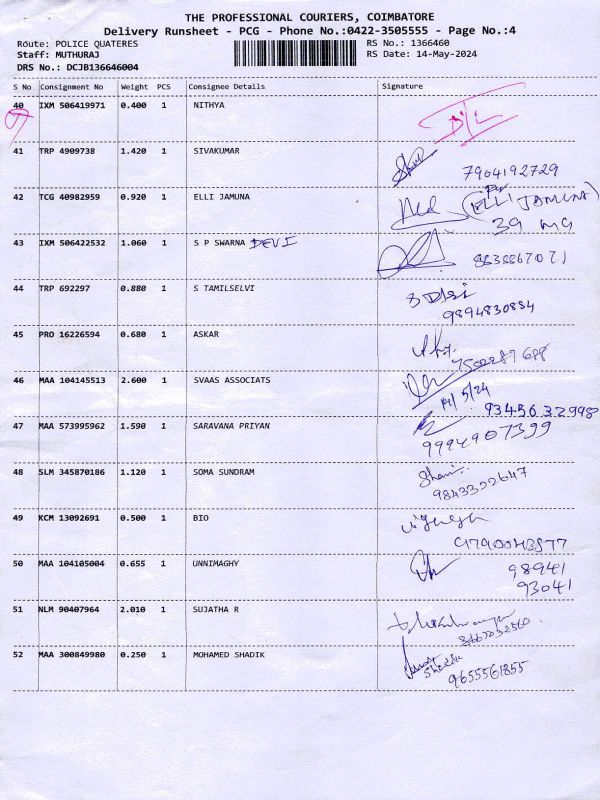 THE PROFESSIONAL COURIERS, COIMBATORE
Delivery Runsheet - PCG - Phone No.:0422-3505555 - Page No.:4
Route: POLICE QUATERES RS No.: 1366460
Staff: MUTHURAJ RS Date: 14-May-2024
DRS No.: DCJB136646004
S No Consignment No Weight PCS Consignee Details Signature
40 IXM 506419971 0.400 1 NITHYA
41 TRP 4909738 1.420 1 SIVAKUMAR 7904192729
42 TCG 40982959 0.920 1 ELLI JAMUNA (ELLI JAMUNA)
43 IXM 506422532 1.060 1 S P SWARNA DEVI
44 TRP 692297 0.880 1 S TAMILSELVI 9894830884
45 PRO 16226594 0.680 1 ASKAR
46 MAA 104145513 2.600 1 SVAAS ASSOCIATS 14/5/24
9345632998
47 MAA 573995962 1.590 1 SARAVANA PRIYAN 9994907399
48 SLM 345870186 1.120 1 SOMA SUNDRAM 9843322647
49 KCM 13092691 0.500 1 BIO
50 MAA 104105004 0.655 1 UNNIMAGHY 98941
93041
51 NLM 90407964 2.010 1 SUJATHA R
52 MAA 300849980 0.250 1 MOHAMED SHADIK 9655561855